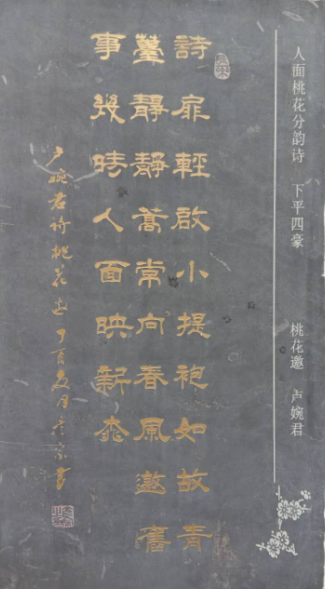 人面桃花分韵诗 下平四豪 桃花邀 卢婉君
詩扉輕啟小提袍如故青
臺靜靜蒿常向春風邀舊
事幾時人面映新桃
卢婉君诗桃花邀 丁酉夏月